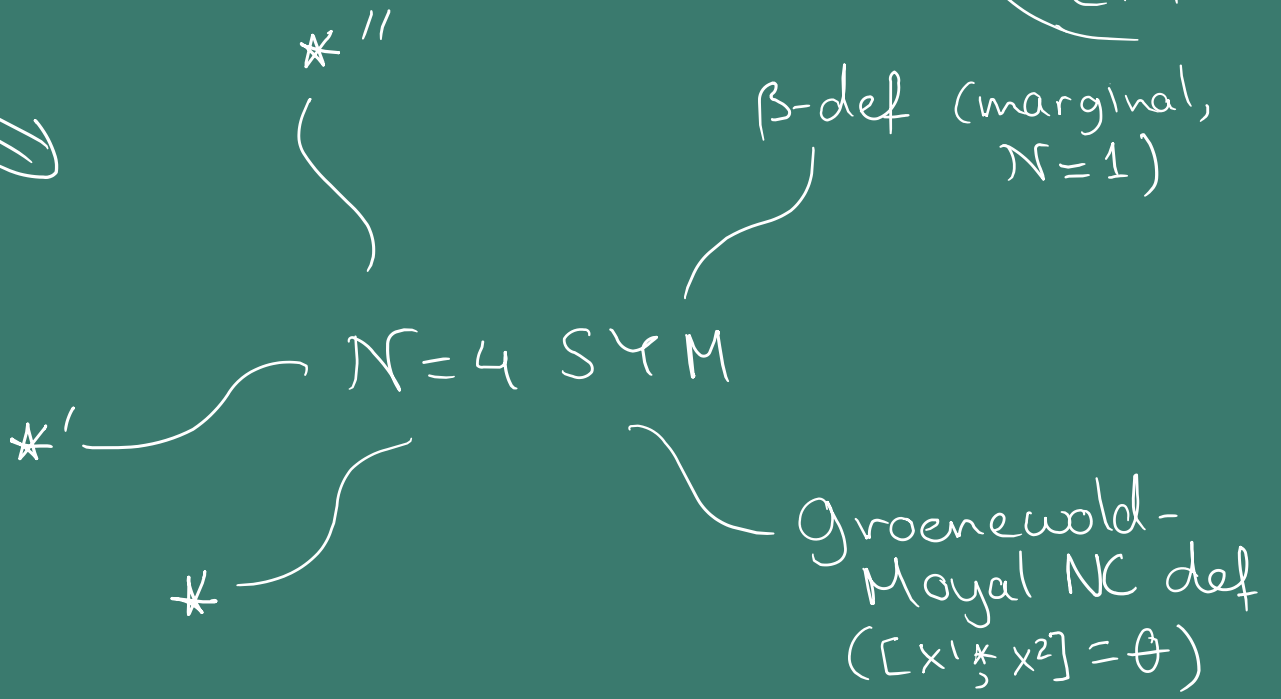 *''
β-def (marginal,
N=1)
N=4 SYM
*'
*
Groenewold-
Moyal NC def
([x¹ *, x²] = θ)